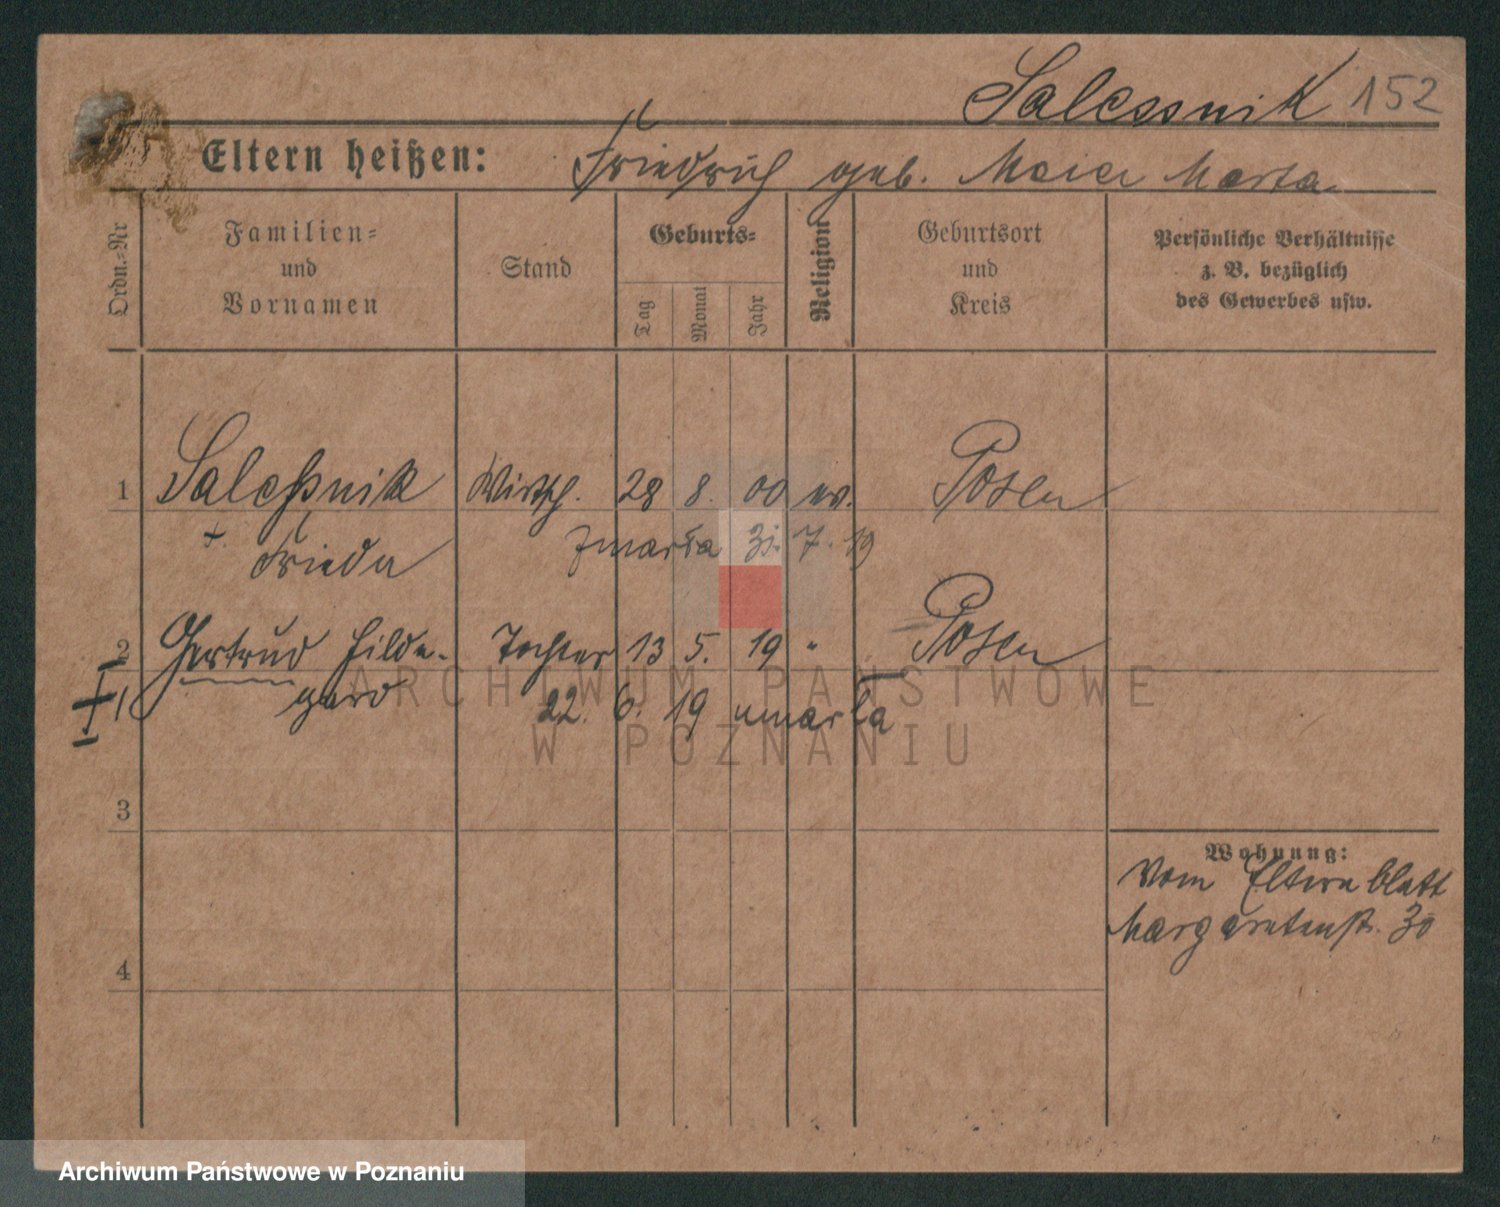 Salessnik 152
Eltern heißen: Friedrich geb. Maier Marta
Ordn.=Nr
Familien=
und
Vornamen
Stand
Geburts=
Tag
Monat
Jahr
Religion
Geburtsort
und
Kreis
Persönliche Verhältnisse
z. B. bezüglich
des Gewerbes usw.
1 Saleßnik Wirtsch. 28 8. 00 ev. Posen
Frieda zmarła 31. 7. 19
2 Gertrud Hilde- Tochter 13 5. 19 " Posen
gard 22. 6. 19 umarła
3
Wohnung:
Vom Elternblatt
Margaretenstr. 30
4
ARCHIWUM PAŃSTWOWE
W POZNANIU
Archiwum Państwowe w Poznaniu